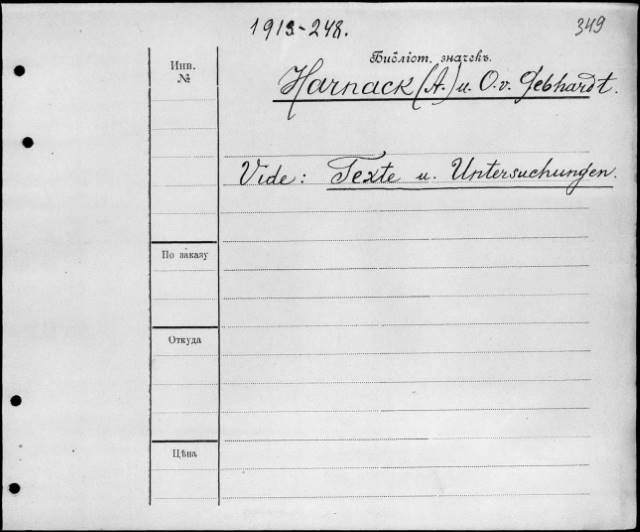 1913-248.
349
Инв.
№
Библіот. значекъ.
Harnack (A.) u. O. v. Gebhardt.
Vide: Texte u. Untersuchungen.
По заказу
Откуда
Цѣна